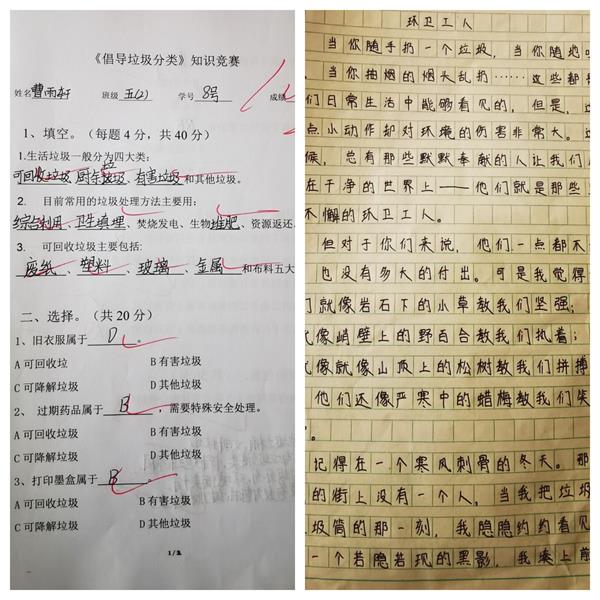 《倡导垃圾分类》知识竞赛
姓名 曹雨轩 班级 五(2) 学号 8号 成绩
1、填空。（每题4分，共40分）
1.生活垃圾一般分为四大类：
可回收垃圾、厨余垃圾、有害垃圾和其他垃圾。
2. 目前常用的垃圾处理方法主要用：
综合利用、卫生填埋、焚烧发电、生物堆肥、资源返还。
3. 可回收垃圾主要包括：
废纸、塑料、玻璃、金属和布料五大
二、选择。（共20分）
1、旧衣服属于 D 。
A 可回收垃 B 有害垃圾
C 可降解垃圾 D 其他垃圾
2、 过期药品属于 B ，需要特殊安全处理。
A 可回收垃圾 B 有害垃圾
C 可降解垃圾 D 其他垃圾
3、打印墨盒属于 B 。
A 可回收垃圾 B 有害垃圾
C 可降解垃圾 D 其他垃圾
1/2
环卫工人
当你随手扔一个垃圾，当你随地
当你抽烟的烟头乱扔……这些都
们日常生活中能够看见的，但是，这
点小动作却对环境的伤害非常大。这
候，总有那些默默奉献的人让我们
在干净的世界上——他们就是那些
不懈的环卫工人。
但对于你们来说，他们一点都不
也没有多大的付出。可是我觉得
们就像岩石下的小草教我们坚强；
就像峭壁上的野百合教我们执着；
就像就像山顶上的松树教我们拼搏
他们还像严寒中的蜡梅教我们
。
记得在一个寒风刺骨的冬天。那
的街上没有一个人。当我把垃圾
圾筒的那一刻，我隐隐约约看见
一个若隐若现的黑影，我凑上前